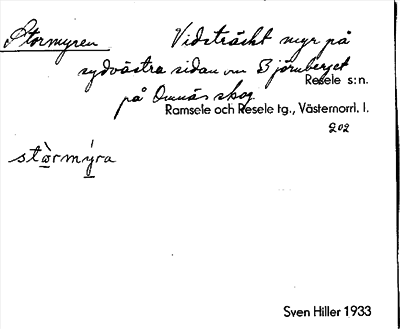 Stormyren Vidsträckt myr på
sydvästra sidan om Björnberget
Resele s:n.
på Omnäs skog
Ramsele och Resele tg., Västernorrl. l.
202
stòrmýra
Sven Hiller 1933